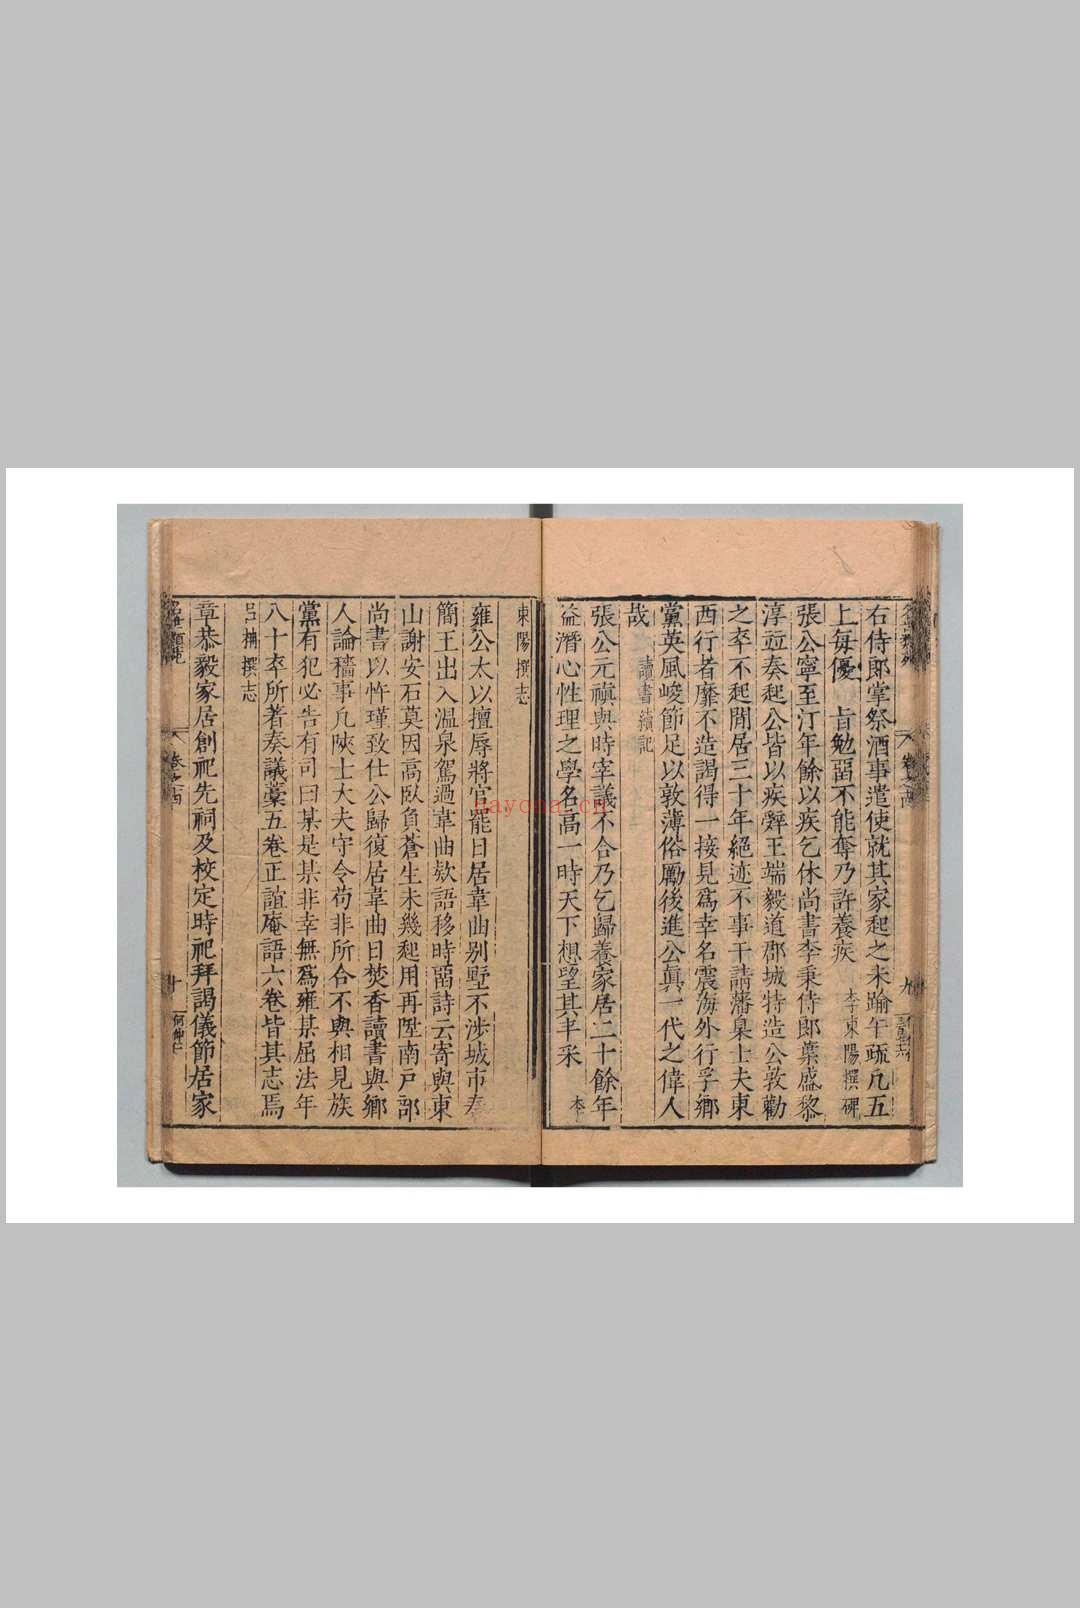 右侍郎掌祭酒事遣使就其家起之未踰年疏凡五
上每優 旨勉留不能奪乃許養疾 李東陽撰碑
張公寧至汀年餘以疾乞休尚書李秉侍郎葉盛黎
淳竝奏起公皆以疾辭王端毅道郡城特造公敦勸
之卒不起閒居三十年絕迹不事干請藩臬士夫東
西行者靡不造謁得一接見爲幸名震海外行孚鄉
黨英風峻節足以敦薄俗厲後進公眞一代之偉人
哉 讀書續記
張公元禎與時宰議不合乃乞歸養家居二十餘年
益潛心性理之學名高一時天下想望其丰采 李
東陽撰志
雍公太以擅辱將官罷日居韋曲别墅不涉城市秦
簡王出入溫泉駕過韋曲欵語移時留詩云寄與東
山謝安石莫因高臥負蒼生未幾起用再陞南戸部
尚書以忤瑾致仕公歸復居韋曲日焚香讀書與鄉
人論穡事凡陝士大夫守令苟非所合不與相見族
黨有犯必告有司曰某是某非幸無爲雍某屈法年
八十卒所著奏議藁五卷正誼庵語六卷皆其志焉
呂柟撰志
章恭毅家居創祀先祠及校定時祀拜謁儀節居家
卷之四
十
何鯨仁
nayona.cn